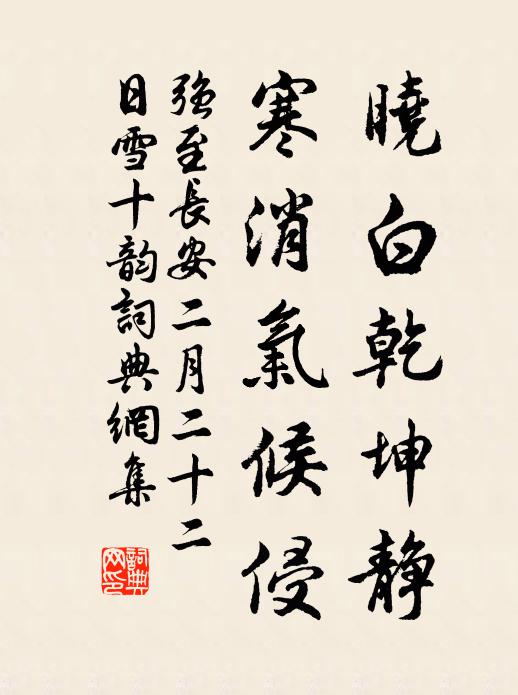 曉白乾坤静
寒消氣候侵
強至長安二月二十二
日雪十韵詞典網集
詞典网印